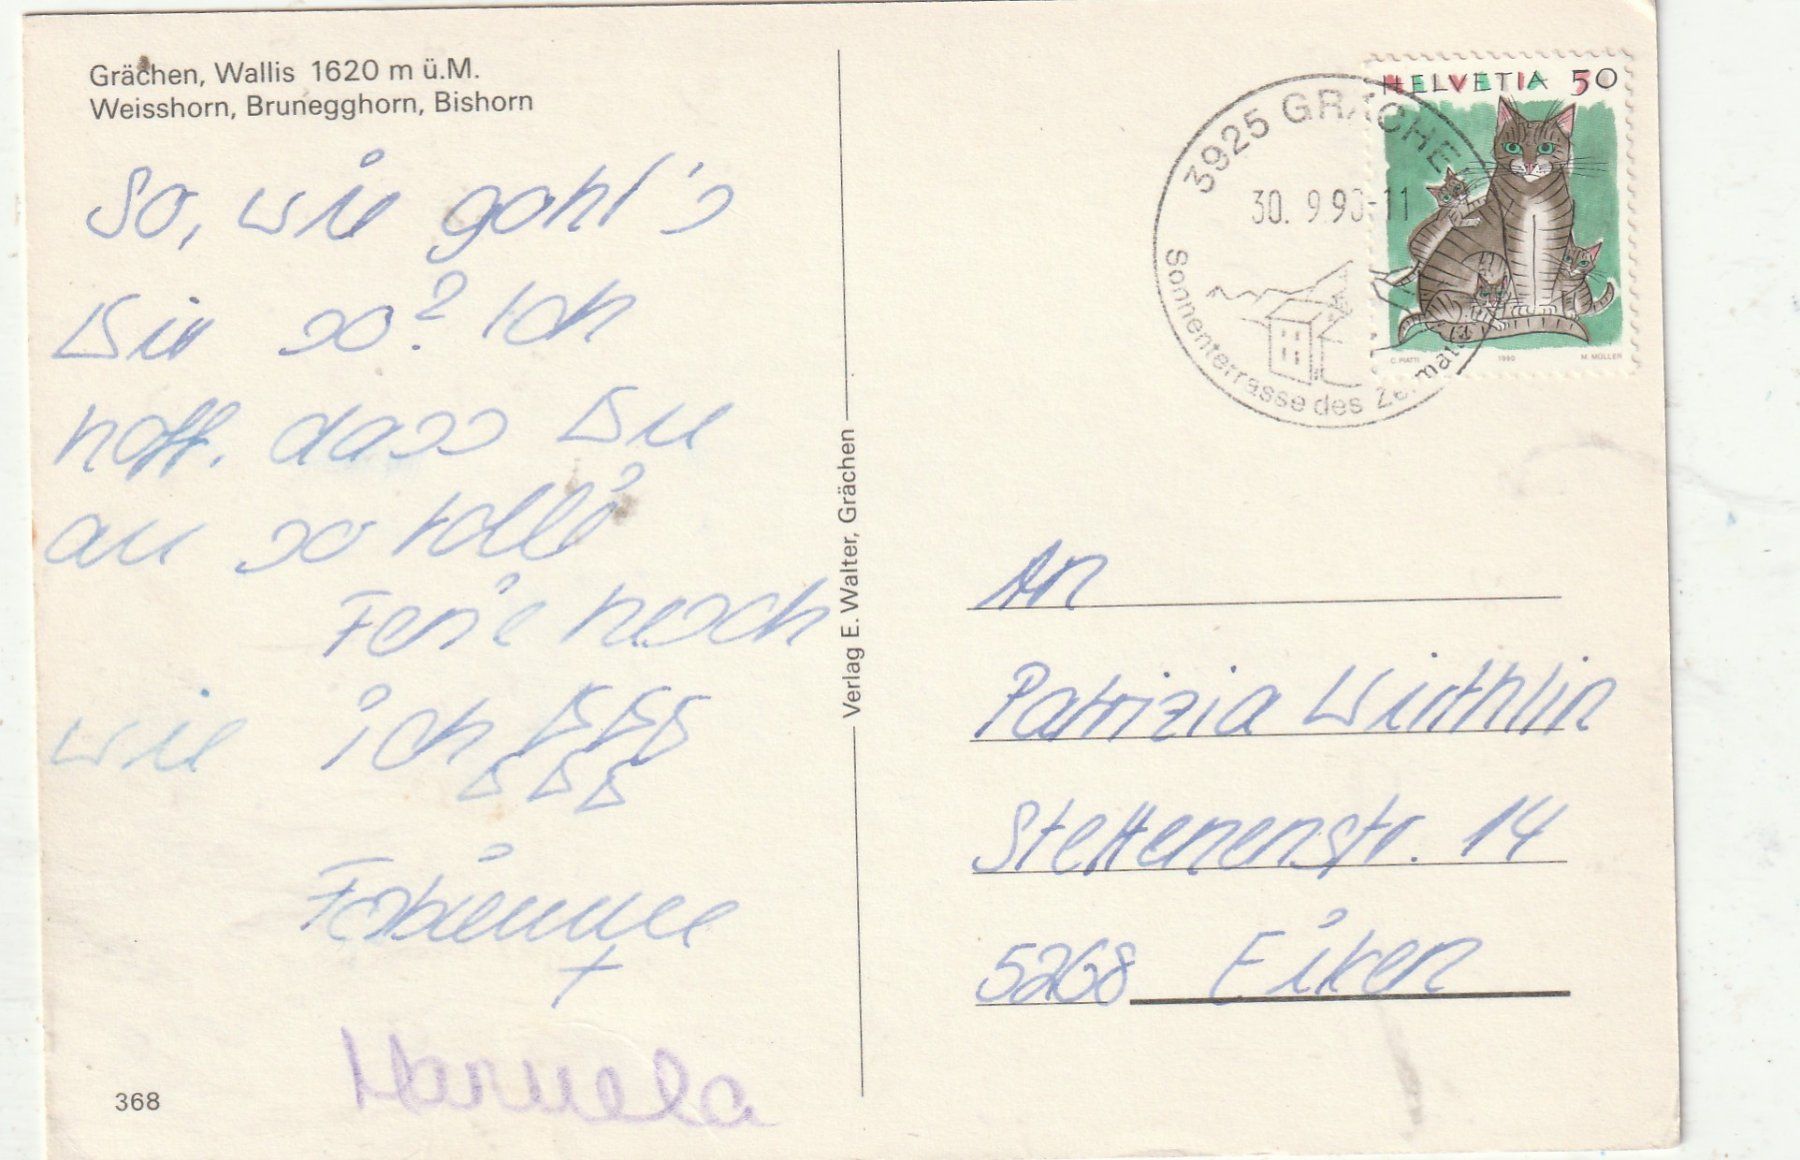 Grächen, Wallis 1620 m ü.M.
Weisshorn, Brunegghorn, Bishorn
So, wie goht's
Dir so? Ich
hoff, dass Du
au so tolli
Ferie hesch
wie ich
Fabienne
+
Manuela
368
Verlag E. Walter, Grächen
3925 GRÄCHE
30. 9.90-11
Sonnenterrasse des Zermatt
HELVETIA 50
C. PIATTI 1990 M. MÜLLER
An
Patrizia Wirthlin
Stettenenstr. 14
5268 Eiken